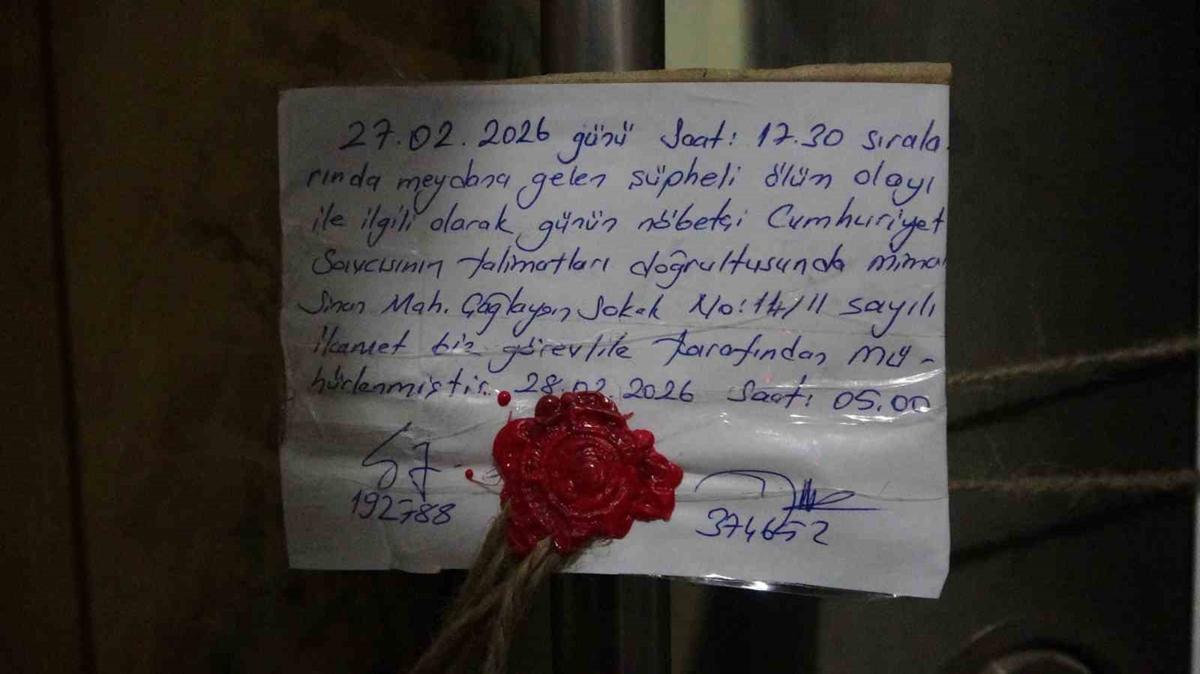 27.02.2026 günü Saat: 17.30 sırala
rında meydana gelen şüpheli ölüm olayı
ile ilgili olarak günün nöbetçi Cumhuriyet
Savcısının talimatları doğrultusunda mima
Sinan Mah. Çağlayan Sokak No: 14/11 sayılı
ikamet biz görevlile tarafından mü-
hürlenmiştir. 28.02.2026 Saat: 05.00
192788
374652